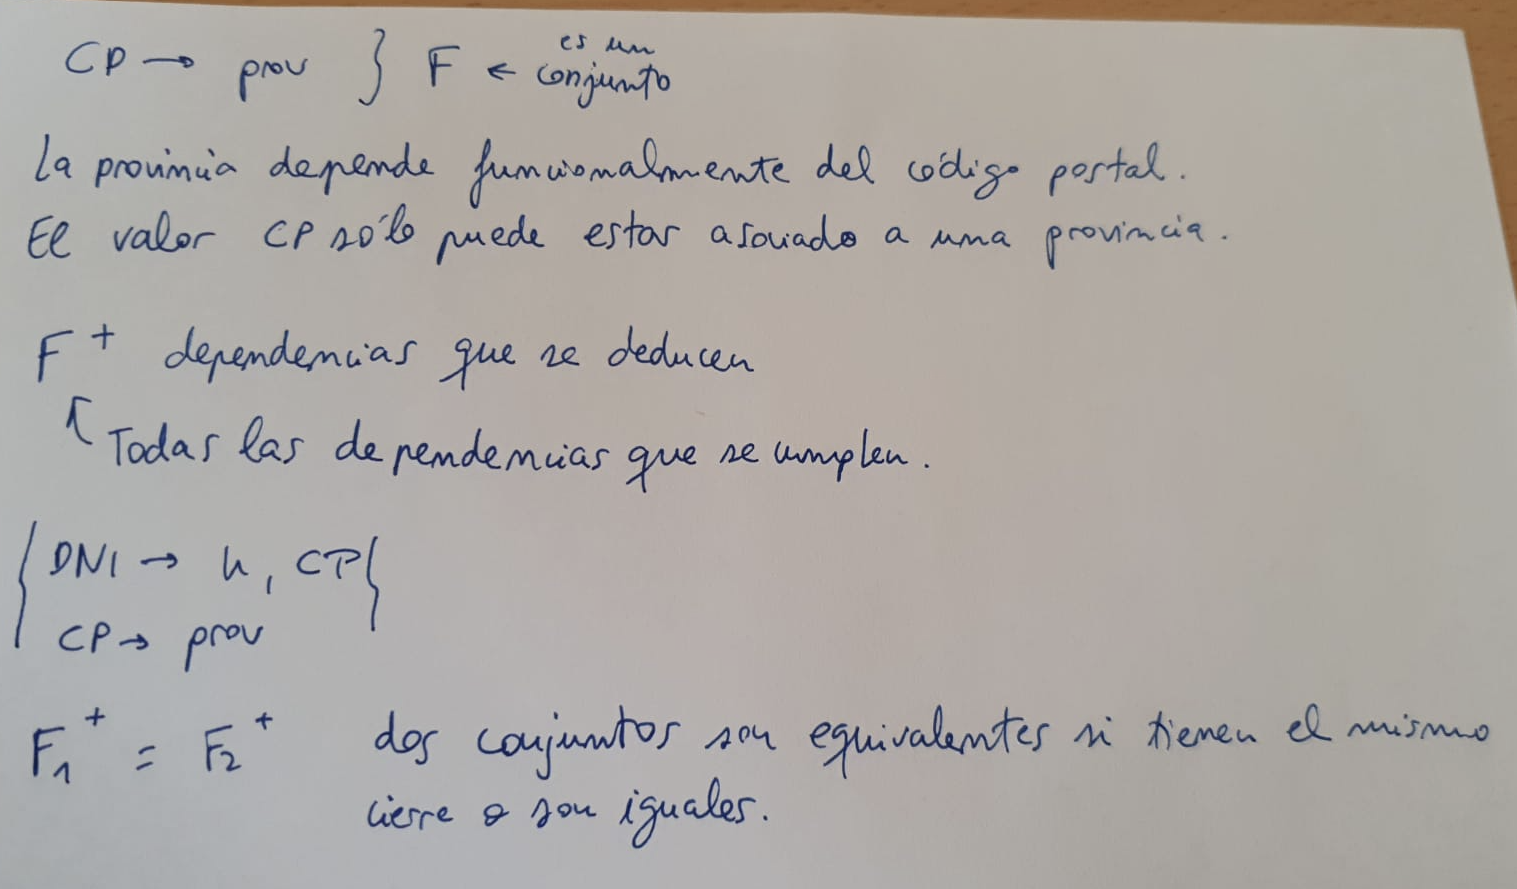 CP → prov } F ← es un conjunto
La provincia depende funcionalmente del código postal.
El valor CP sólo puede estar asociado a una provincia.
F⁺ dependencias que se deducen
↑ Todas las dependencias que se cumplen.
{ DNI → n, CP }
CP → prov
F₁⁺ = F₂⁺ dos conjuntos son equivalentes si tienen el mismo
cierre o son iguales.